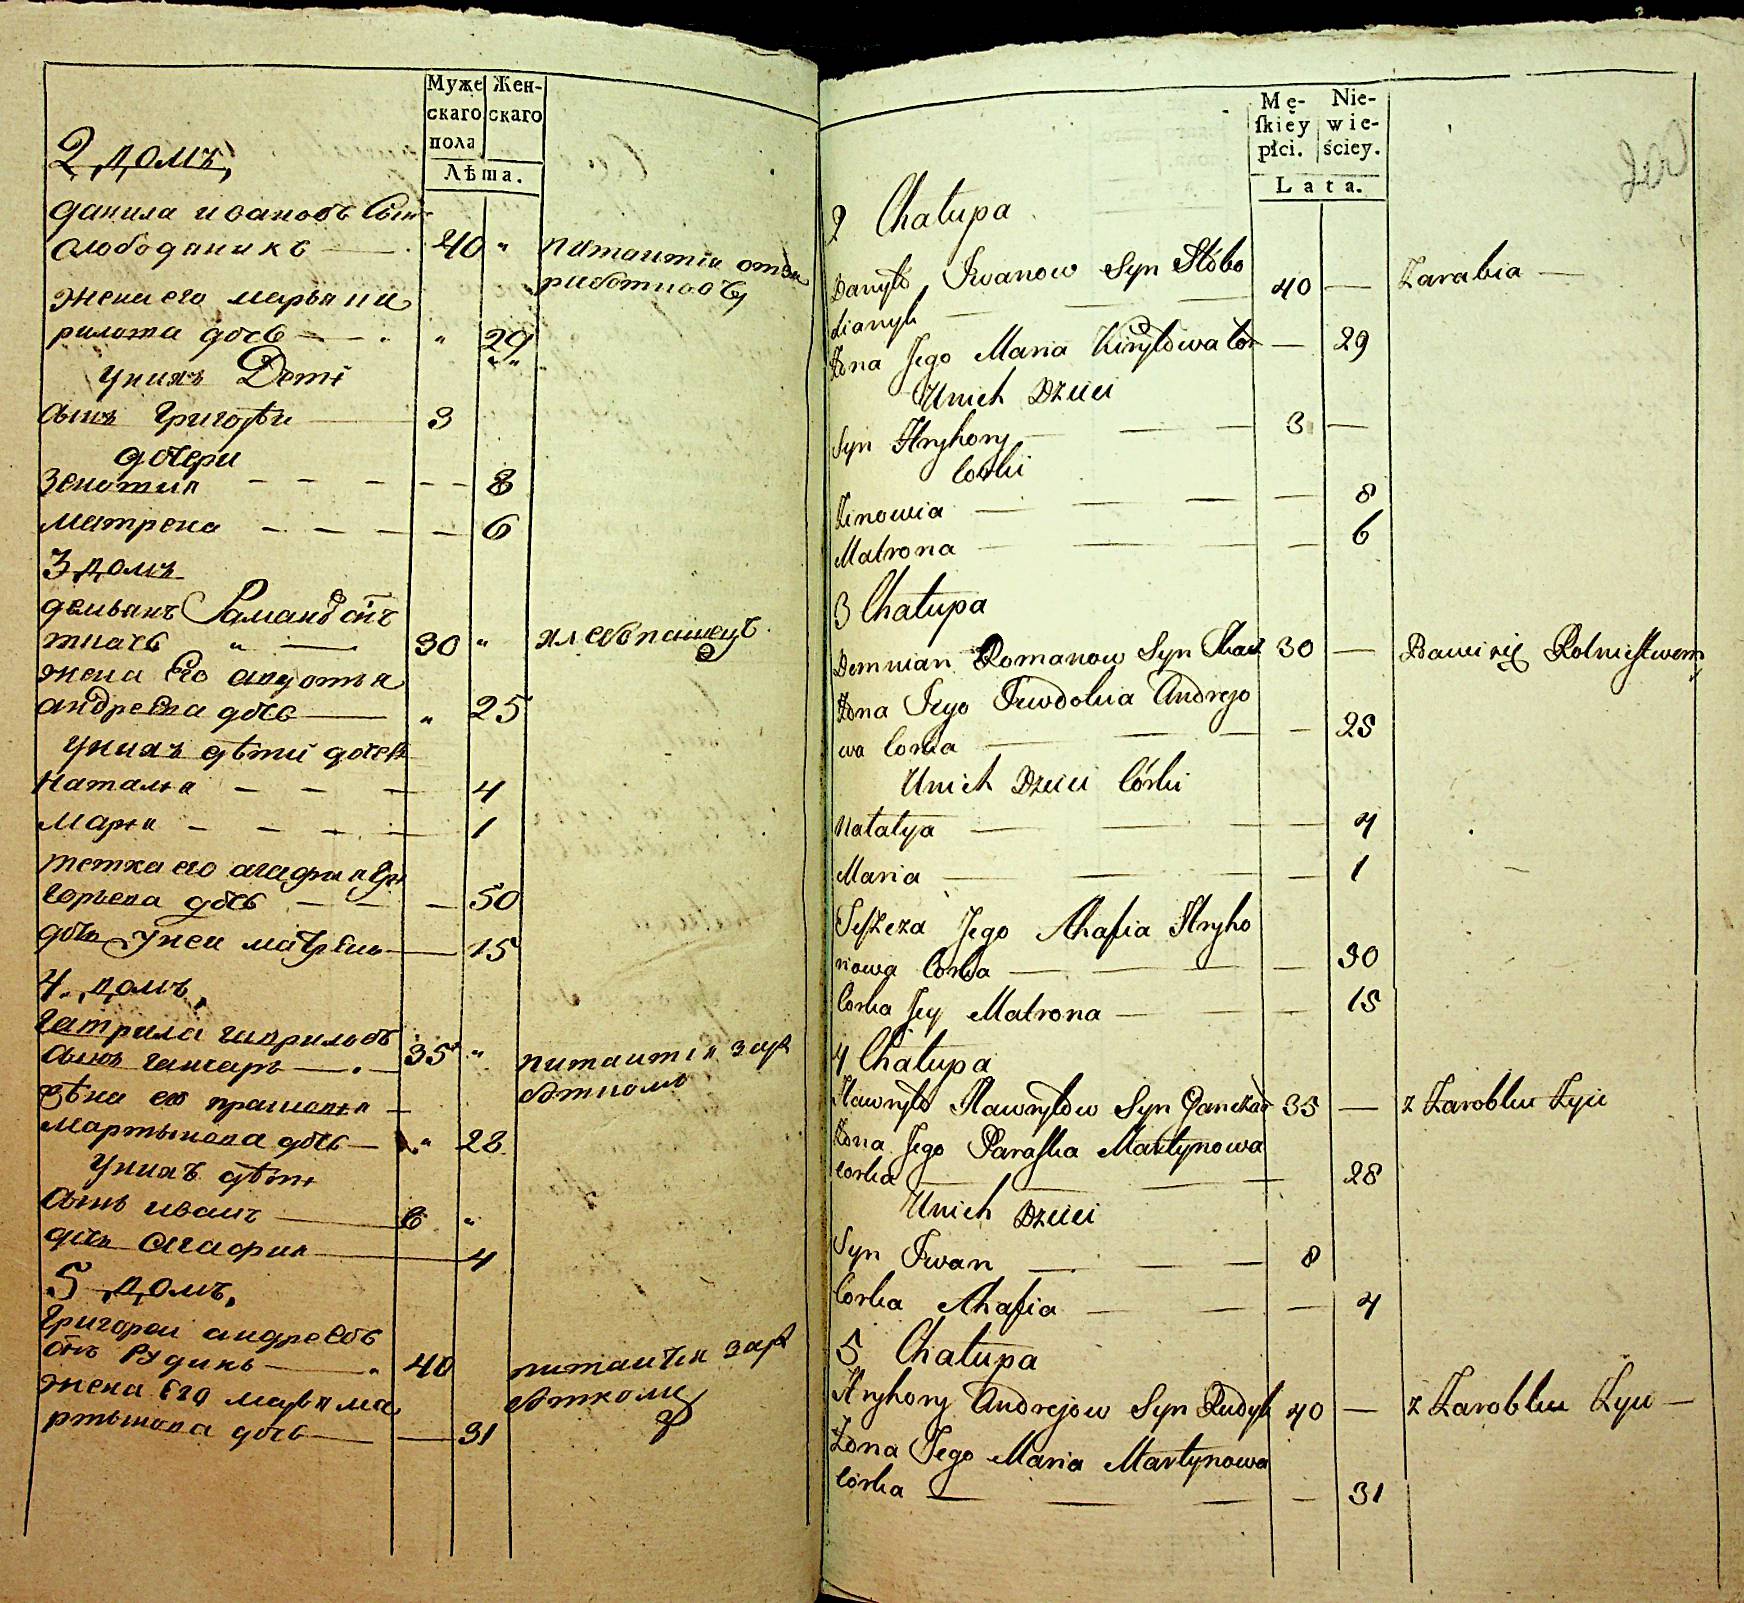 Муже Жен-
скаго скаго
пола
Лѣта.
2 домъ,
данила ивановъ сын
слободяникъ 40 " питаитця отза
работковъ
жена его марья ки
рилова дочь " 29
уних Дети
сынъ григорѣи 3
дочери
Зеновия 8
матрена 6
3 домъ
демьянъ Раманов снъ
ткачь " 30 " хлебопашецъ
жена Его авдотья
андреева дочь " 25
уних дѣти дочери
наталья 4
Марья 1
тетка его агафия гри
горьева дочь 50
дочь унеи матрена 15
4. домъ,
гаврила гавриловъ
сынъ ганчаръ 35 " питаитця зар
боткомъ
жѣна его прасковья
мартынова дочь " 28
Уних дѣти
сынъ иванъ 8 "
дочь агафия 4
5 домъ,
григореи андреевъ
снъ рудикъ 40 питаитця зар
боткомъ
жена Его марья ма
ртынова дочь 31
Mę- Nie-
ſkiey wie-
płci. ściey.
Lata.
2 Chałupa
Danyło Iwanow Syn Słobo 40 — Zarabia —
dianyk
Żona Jego Maria Kiryłowa Cor — 29
Unich Dzieci
Syn Hryhory 3 —
Corki
Zinowia 8
Matrona 6
3 Chałupa
Demnian Romanow Syn Tkacz 30 — Bawi się Rolnictwem
Żona Jego Iewdokia Andrejo
wa Corka — 25
Unich Dzieci Córki
Natalya 4
Maria 1
Ciotka Jego Ahafia Hryho
riowa Corka — 30
Corka Jey Matrona — 15
4 Chałupa
Hawryło Hawryłow Syn Ganczar 35 — z Zarobku Żyie
Żona Jego Paraska Martynowa
Corka — 28
Unich Dzieci
Syn Iwan 8
Corka Ahafia — 4
5 Chałupa
Hryhory Andrejow Syn Rudyk 40 — z Zarobku Żyie —
Żona Jego Maria Martynowa
Córka — 31